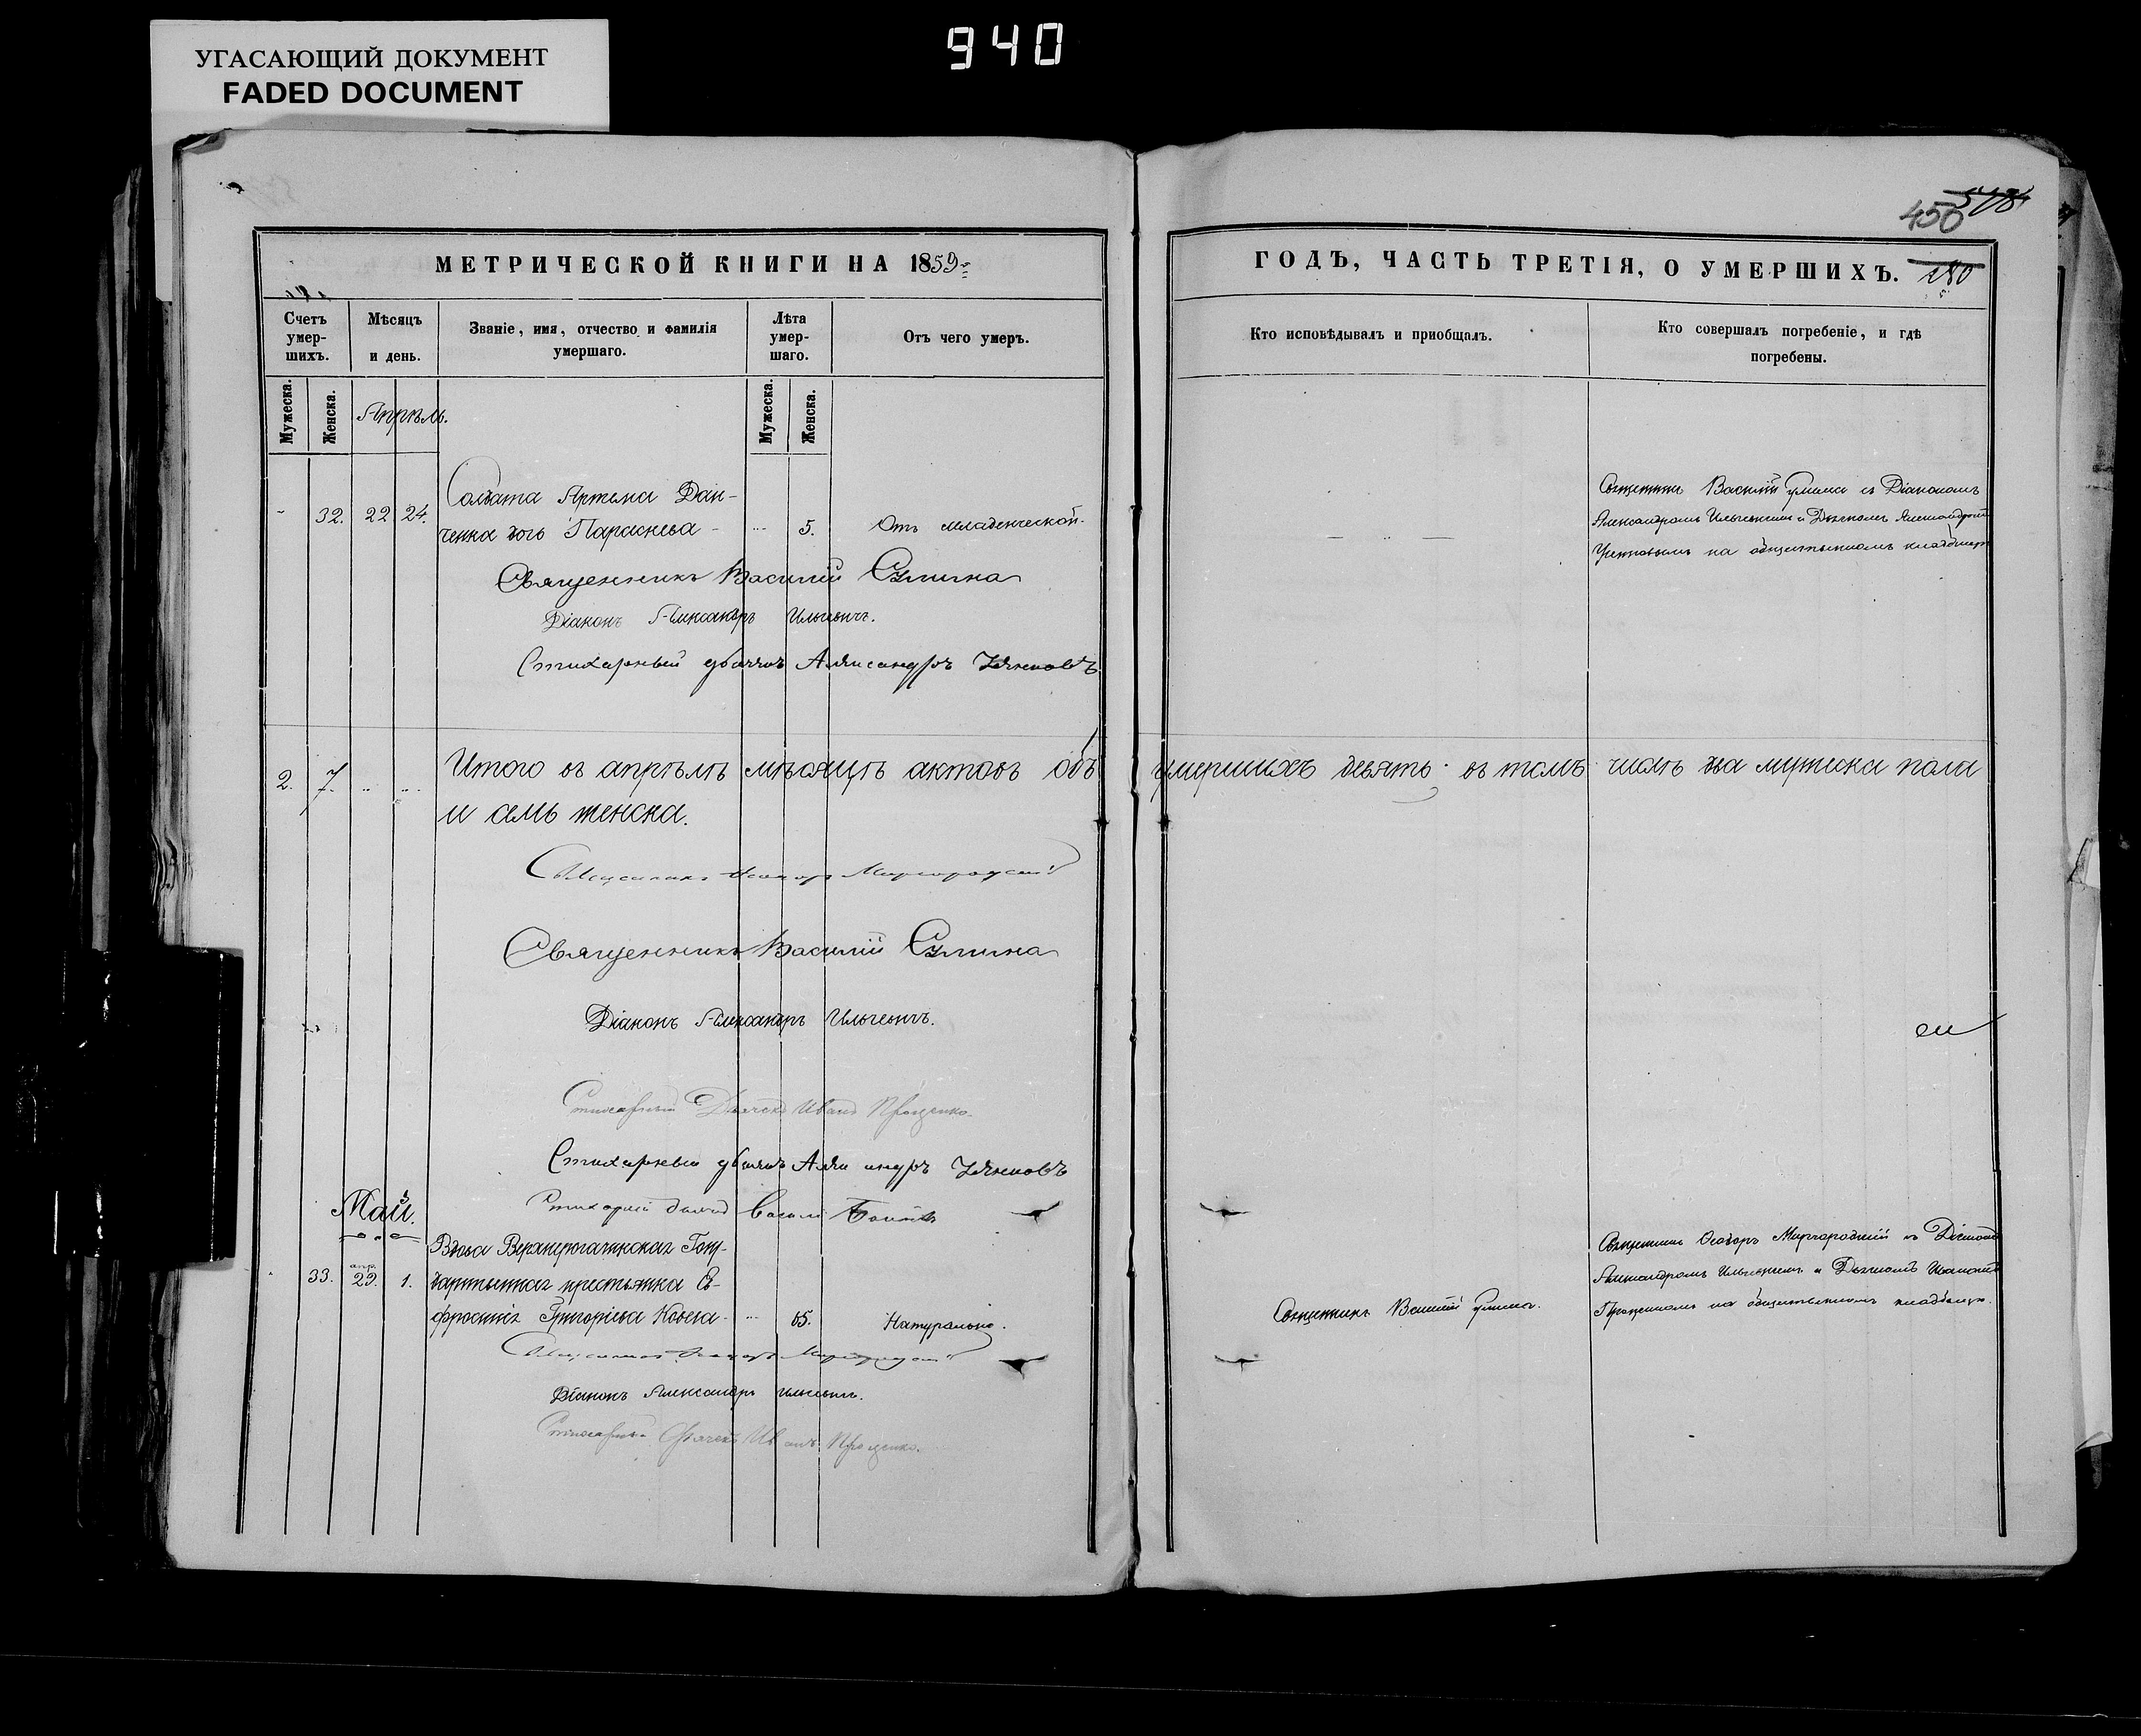 УГАСАЮЩИЙ ДОКУМЕНТ
FADED DOCUMENT
940
450
МЕТРИЧЕСКОЙ КНИГИ НА 1859
ГОДЪ, ЧАСТЬ ТРЕТІЯ, О УМЕРШИХЪ. 280
Счетъ умер-шихъ.
Мѣсяцъ и день.
Званіе, имя, отчество и фамилія умершаго.
Лѣта умер-шаго.
Отъ чего умеръ.
Кто исповѣдывалъ и приобщалъ.
Кто совершалъ погребеніе, и гдѣ погребены.
Мужеска.
Женска.
Апрѣль.
Мужеска.
Женска.
Солдата Артема Дан-
32. 22 24. ченка дочь Параскева - 5. Отъ младенческой.
Священникъ Василій Сулима съ Діакономъ
Александромъ Ильчевичемъ и Дьячкомъ Александромъ
на общественномъ кладбищѣ
Священникъ Василій Сулима
Діаконъ Александръ Ильчевичъ.
Стихарный дьячокъ Александръ
2. 7. Итого въ апрѣлѣ мѣсяцѣ актовъ объ умершихъ девять; въ томъ числѣ два мужеска пола
и семь женска.
Священникъ Ѳеодоръ Миргородскій
Священникъ Василій Сулима
Діаконъ Александръ Ильчевичъ.
Стихарный Дьячекъ Иванъ Проценко.
Стихарный дьячокъ Александръ
Май.
Вдова
33. апр. 29. 1. крестьянка Ев-
фросинія Григорьева 65. Натурально.
Священникъ Василій Сулима.
Священникъ Ѳеодоръ Миргородскій съ Діакономъ
Александромъ Ильчевичемъ и Дьячкомъ Иваномъ
Проценкомъ на общественномъ кладбищѣ.
Священникъ Ѳеодоръ Миргородскій
Діаконъ Александръ Ильчевичъ.
Стихарный Дьячекъ Иванъ Проценко.